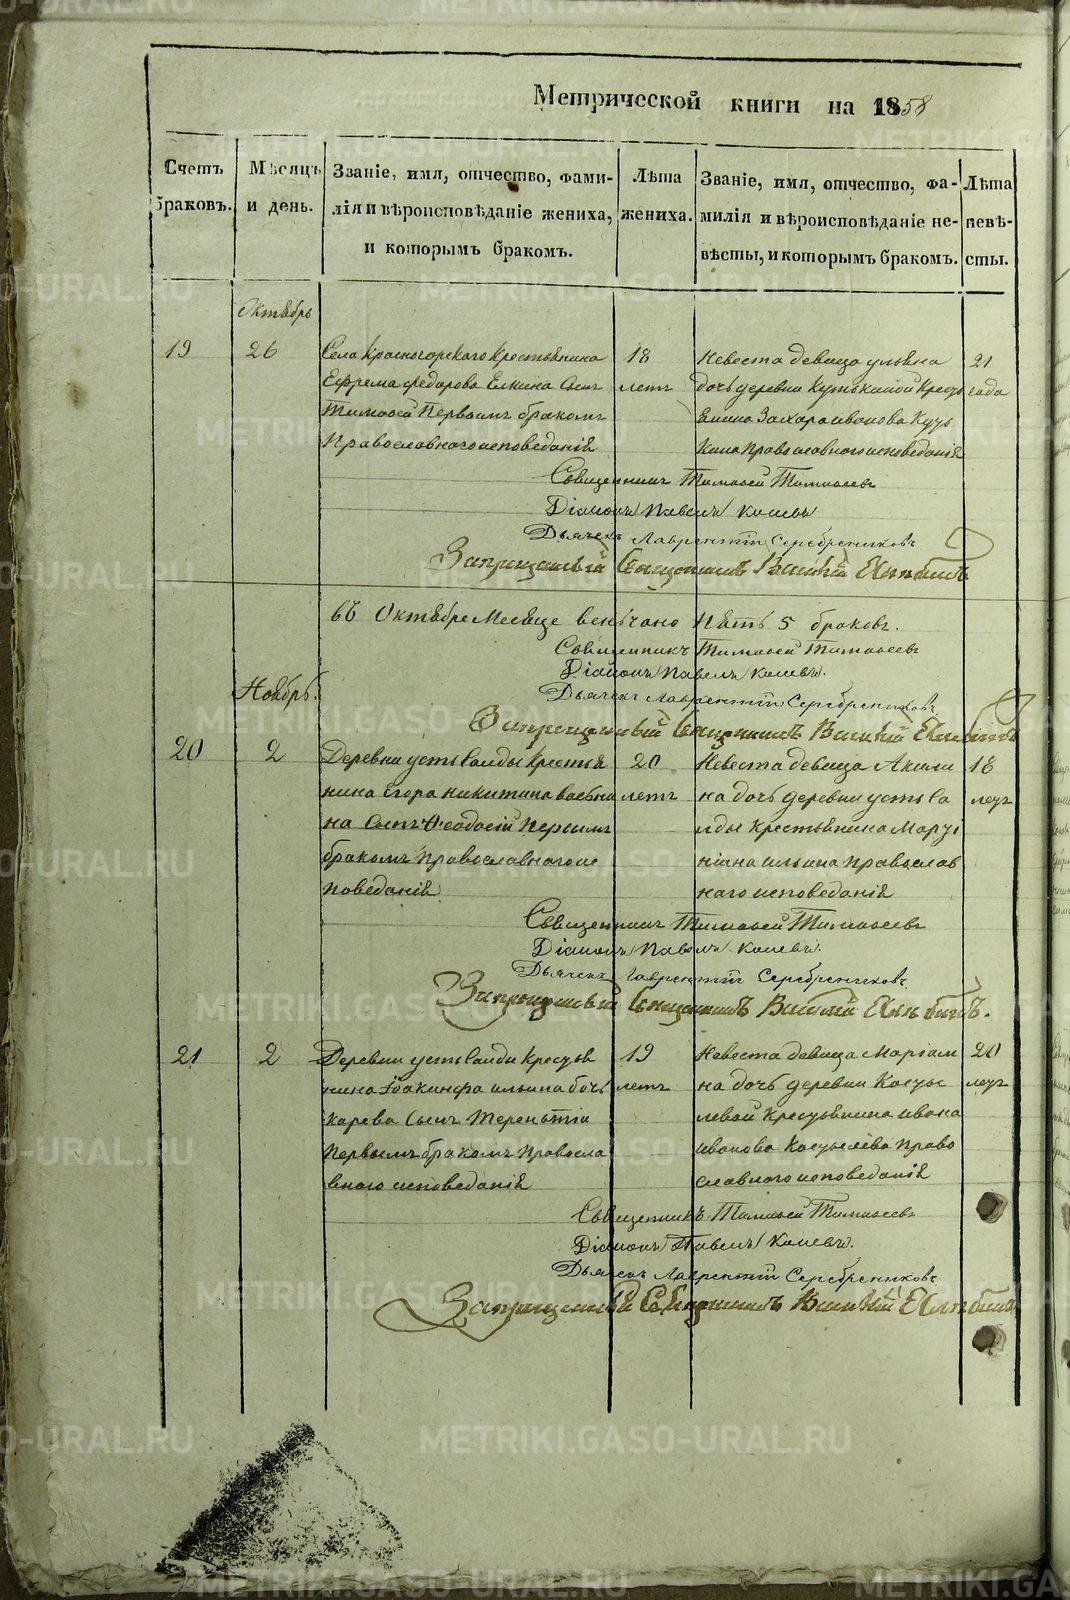 Метрической книги на 1858
Счетъ браковъ.
Мѣсяцъ и день.
Званіе, имя, отчество, фами-
лія и вѣроисповѣданіе жениха,
и которымъ бракомъ.
Лѣта
жениха.
Званіе, имя, отчество, фа-
милія и вѣроисповѣданіе не-
вѣсты, и которымъ бракомъ.
Лѣта
невѣ-
сты.
Октябрь
19
26
Села Красногорскаго Крестьянина
Ефрема Федорова Елкина Сынъ
Тимофей Первымъ бракомъ
Православнаго исповеданія
18
летъ
Невеста девица Ульяна
дочь деревни Кутькиной Крест
янина Захара Иванова Куть
кина Православнаго исповеданія
21
года
Священникъ Тимофей Тимофеевъ
Діаконъ Павелъ
Дьячекъ Лаврентій Серебрениковъ
Запрещенный Священникъ
въ Октябре Месяце венчано Пять 5 браковъ.
Священникъ Тимофей Тимофеевъ
Діаконъ Павелъ
Дьячекъ Лаврентій Серебрениковъ
Запрещенный Священникъ
Ноябрь.
20
2
Деревни усть Салды Крестья
нина Егора Никитина
на Сынъ Феодосій Первымъ
бракомъ Православнаго ис
поведанія
20
летъ
Невеста девица Акили
на дочь деревни усть Са
лды Крестьянина
Ильина Православ
наго исповеданія
18
летъ
Священникъ Тимофей Тимофеевъ
Діаконъ Павелъ
Дьячекъ Лаврентій Серебрениковъ
Запрещенный Священникъ
21
2
Деревни усть Салды Крестья
нина Іоакинфа Ильина Боч
карева Сынъ Терентій
Первымъ бракомъ Правосла
внаго исповеданія
19
летъ
Невеста девица Маріам
на дочь деревни Косты
левой Крестьянина Ивана
Иванова Костылева Право
славнаго исповеданія
20
летъ
Священникъ Тимофей Тимофеевъ
Діаконъ Павелъ
Дьячекъ Лаврентій Серебрениковъ
Запрещенный Священникъ
METRIKI.GASO-URAL.RU